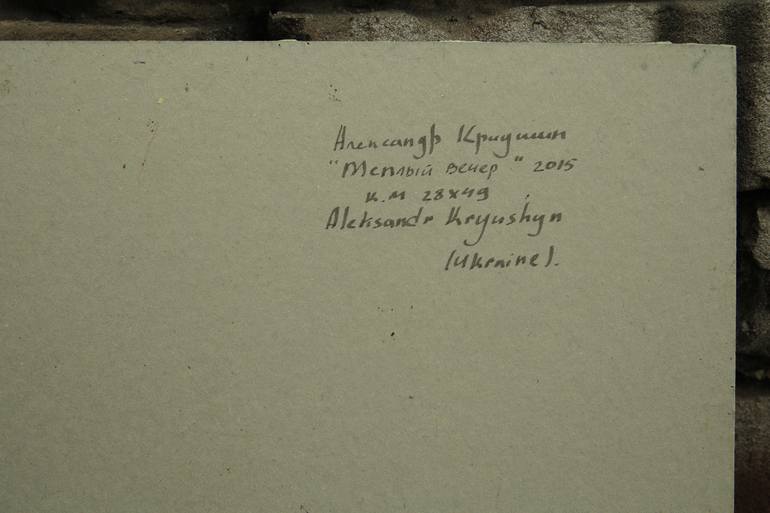 Александр Крюушин
"Теплый вечер" 2015
к.м 28х49
Aleksandr Kryushyn
(Ukraine).